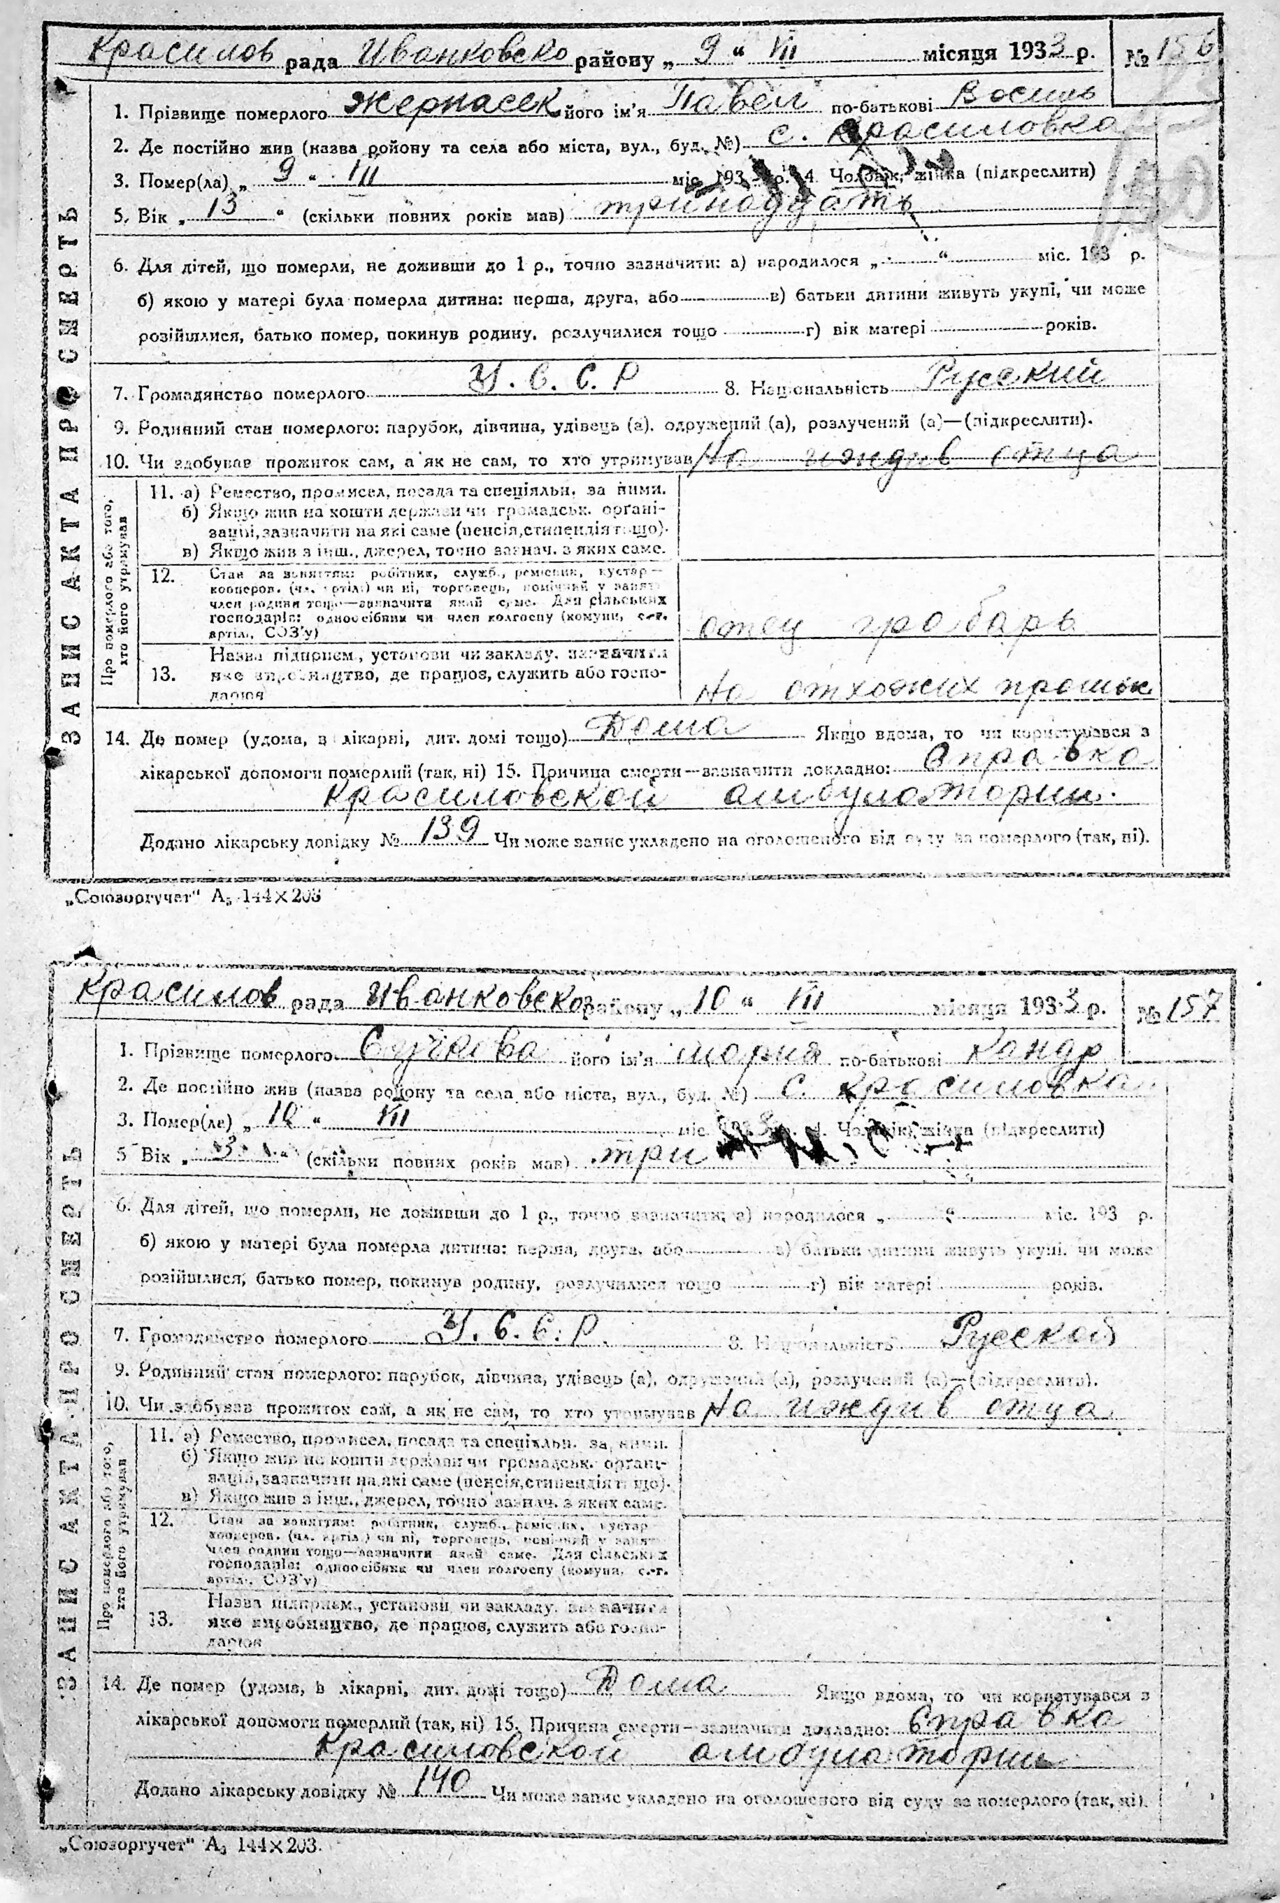 Красилов рада Иванковско району „ 9 “ VII місяця 1933 р. № 156
1. Прізвище померлого його ім'я Павел по-батькові Восиль
2. Де постійно жив (назва району та села або міста, вул., буд. №) с. Красиловка
3. Помер(ла) „ 9 “ VII міс. 193 р. 4. Чоловік, жінка (підкреслити)
5. Вік „ 13 “ (скільки повних років мав) тринадцать
6. Для дітей, що померли, не доживши до 1 р., точно зазначити: а) народилося „ “ міс. 193 р.
б) якою у матері була померла дитина: перша, друга, або в) батьки дитини живуть укупі, чи може
розійшлися, батько помер, покинув родину, розлучилися тощо г) вік матері років.
7. Громадянство померлого У. С. С. Р 8. Національність Русский
9. Родинний стан померлого: парубок, дівчина, удівець (а), одружений (а), розлучений (а)—(підкреслити).
10. Чи здобував прожиток сам, а як не сам, то хто утримував На иждив отца
ЗАПИС АКТА ПРО СМЕРТЬ
Про померлого або того, хто його утримував
11. а) Ремество, промисел, посада та спеціяльн. за ними.
б) Якщо жив на кошти держави чи громадськ. органі-
зації, зазначити на які саме (пенсія, стипендія тощо).
в) Якщо жив з інш., джерел, точно зазнач. з яких саме.
12. Стан за заняттям: робітник, служб., ремісник, кустар—
кооперов. (чл. артілі) чи ні, торговець, помічний у занят.
член родини тощо—зазначити який саме. Для сільських
господарів: одноосібник чи член колгоспу (комуни, с.-г.
артіл., СОЗ'у) отец грабарь
13. Назва підприєм., установи чи закладу, зазначити
яке виробництво, де працює, служить або госпо-
дарює на отхожих промысл
14. Де помер (удома, в лікарні, дит. домі тощо) Дома Якщо вдома, то чи користувався з
лікарської допомоги померлий (так, ні) 15. Причина смерти—зазначити докладно: Справка
Красиловской амбулатории.
Додано лікарську довідку № 139 Чи може запис укладено на оголошеного від суду за померлого (так, ні).
„Союзоргучет“ А₅ 144×203
Красилов рада Иванковской району „ 10 “ VII місяця 1933 р. № 157
1. Прізвище померлого його ім'я Мария по-батькові Кондр
2. Де постійно жив (назва району та села або міста, вул., буд. №) с. Красиловка
3. Помер(ла) „ 10 “ VII міс. 1933 р. 4. Чоловік, жінка (підкреслити)
5 Вік „ 3 “ (скільки повних років мав) три
6. Для дітей, що померли, не доживши до 1 р., точно зазначити: а) народилося „ “ міс. 193 р.
б) якою у матері була померла дитина: перша, друга, або в) батьки дитини живуть укупі, чи може
розійшлися, батько помер, покинув родину, розлучилися тощо г) вік матері років.
7. Громадянство померлого У. С. С. Р. 8. Національність Русской
9. Родинний стан померлого: парубок, дівчина, удівець (а), одружений (а), розлучений (а)—(підкреслити).
10. Чи здобував прожиток сам, а як не сам, то хто утримував На иждив отца
ЗАПИС АКТА ПРО СМЕРТЬ
Про померлого або того, хто його утримував
11. а) Ремество, промисел, посада та спеціяльн. за ними.
б) Якщо жив на кошти держави чи громадськ. органі-
зацій, зазначити на які саме (пенсія, стипендія тощо).
в) Якщо жив з інш., джерел, точно зазнач. з яких саме.
12. Стан за заняттям: робітник, служб., ремісник, кустар
кооперов. (чл. артілі) чи ні, торговець, помічний у занят.
член родини тощо—зазначити який саме. Для сільських
господарів: одноосібник чи член колгоспу (комуни, с.-г.
артіл., СОЗ'у)
13. Назва підприєм., установи, чи закладу, зазначити
яке виробництво, де працює, служить або госпо-
дарює
14. Де помер (удома, в лікарні, дит. домі тощо) Дома Якщо вдома, то чи користувався з
лікарської допомоги померлий (так, ні) 15. Причина смерти—зазначити докладно: Справка
Красиловской амбулатории
Додано лікарську довідку № 140 Чи може запис укладено на оголошеного від суду за померлого (так, ні).
„Союзоргучет“ А₅ 144×203.